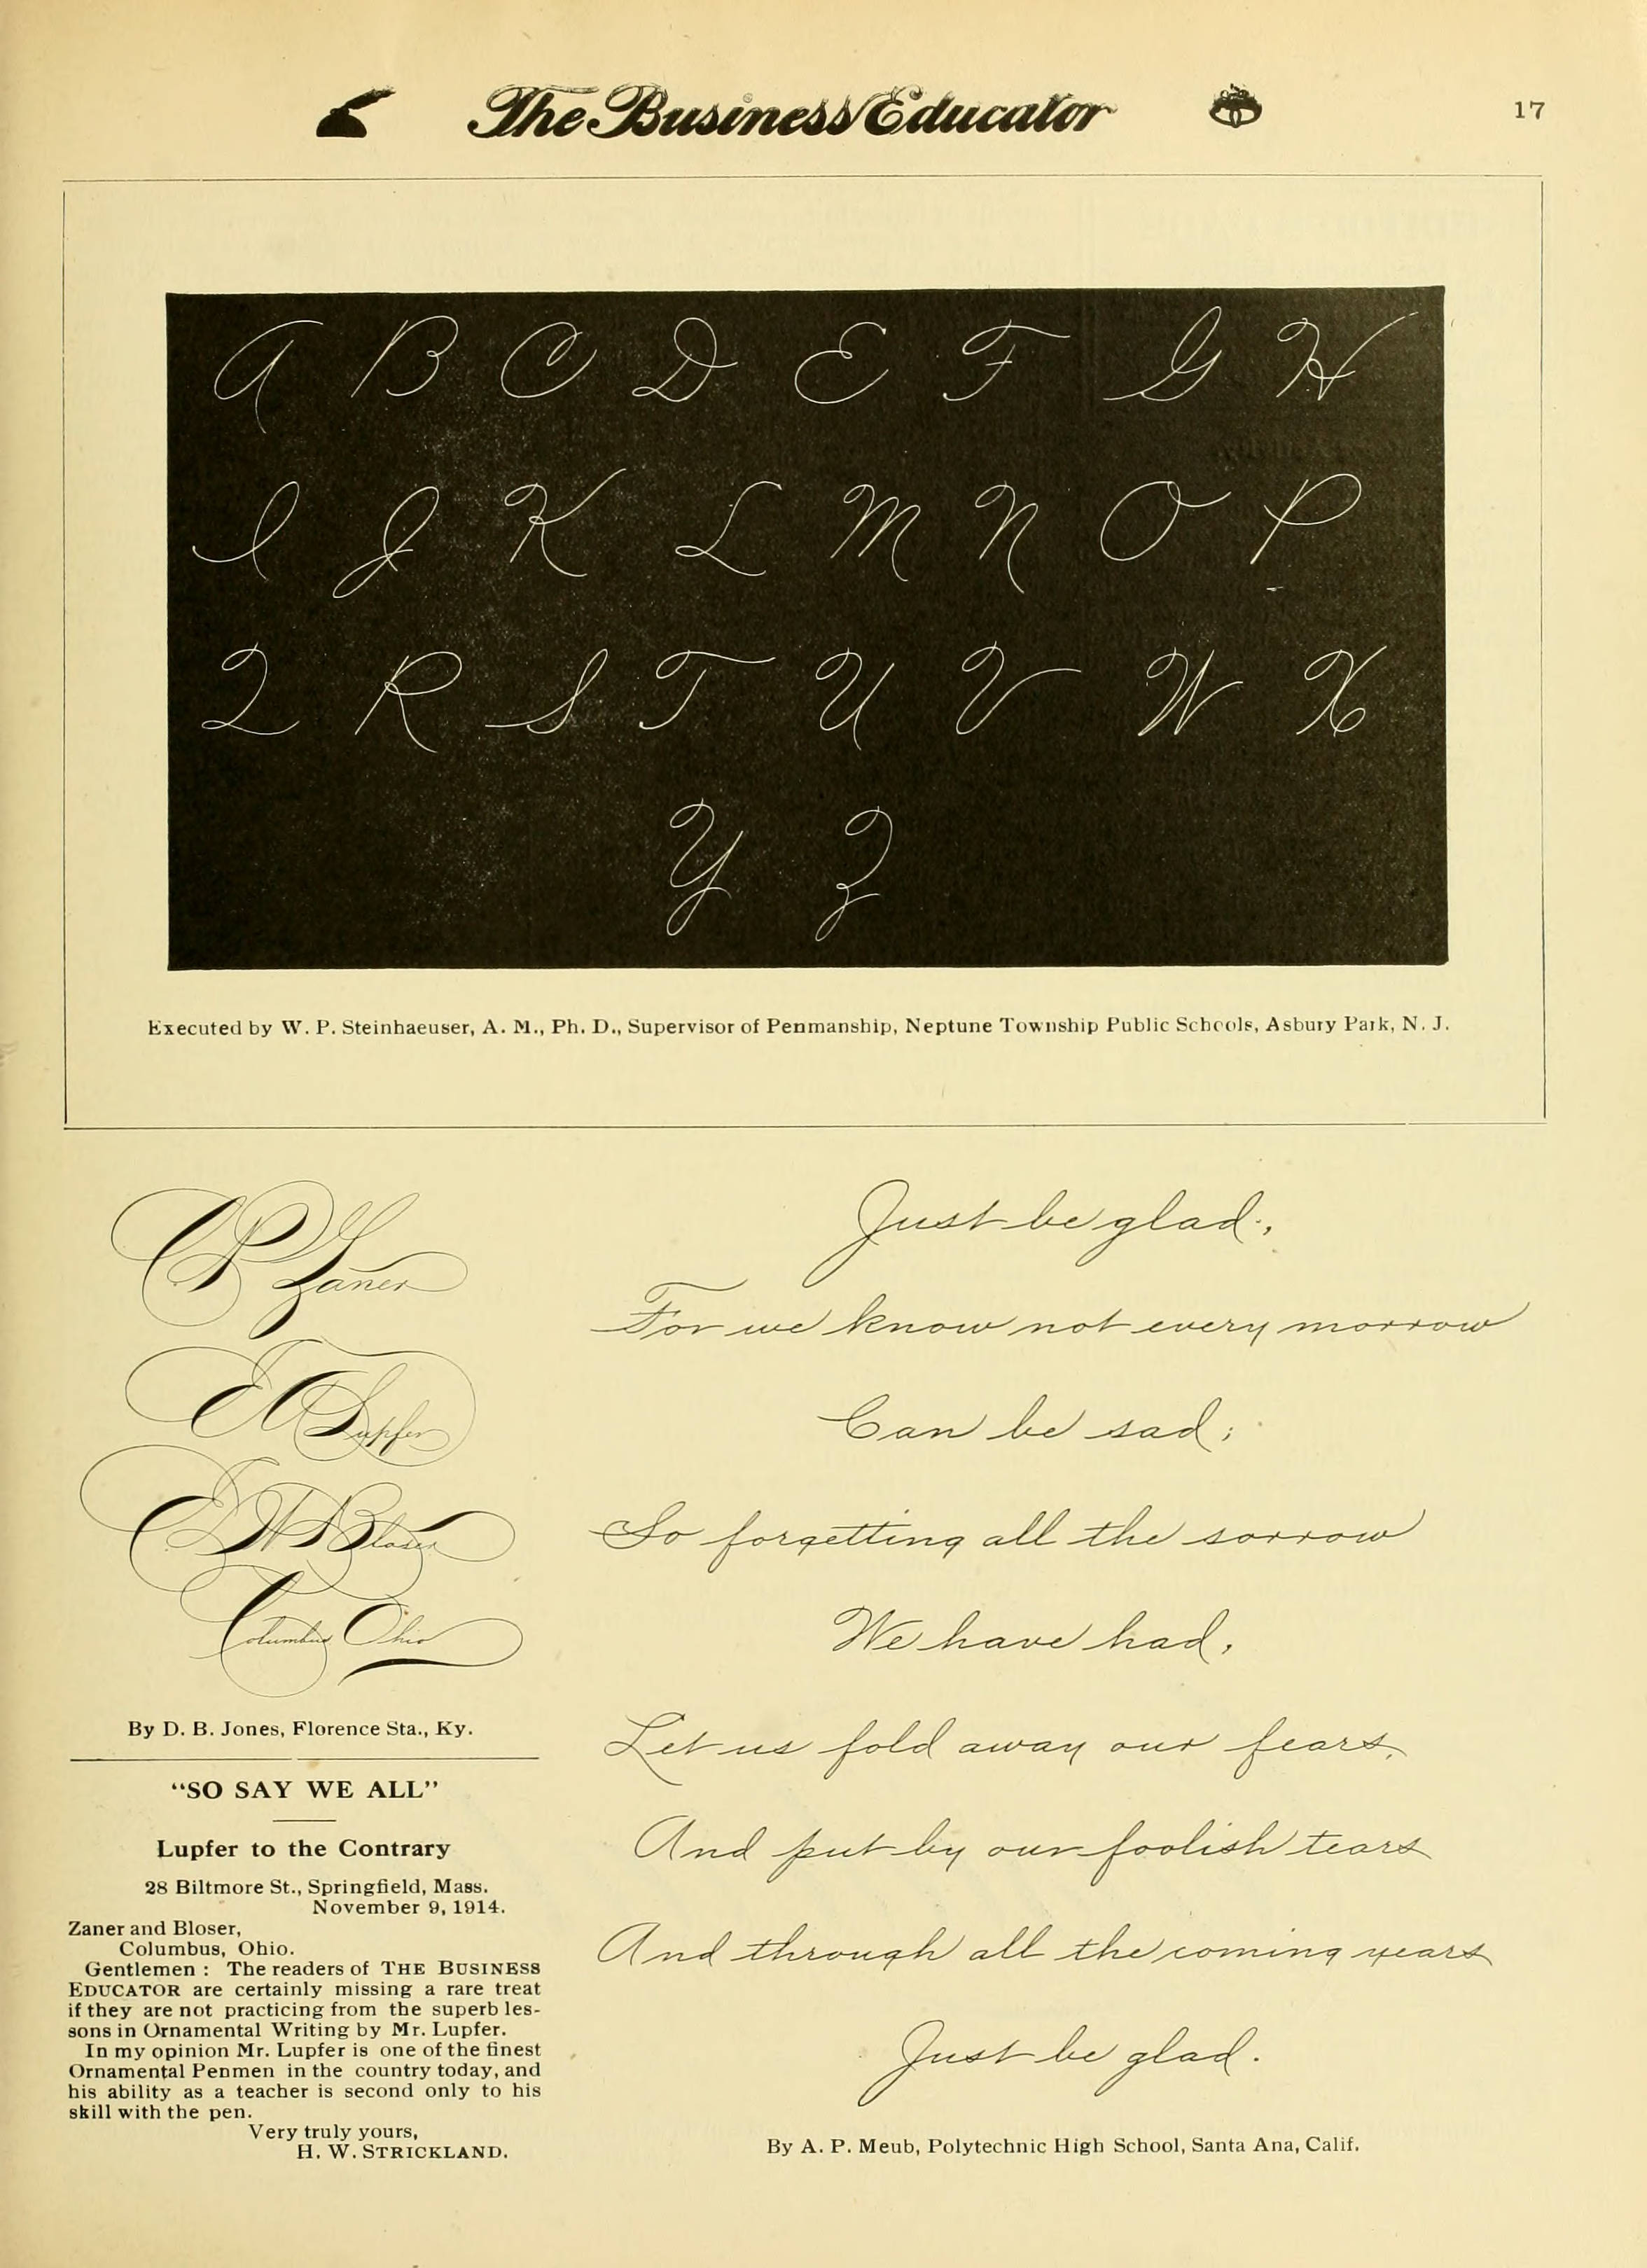 The Business Educator
17
A B C D E F G H
I J K L M N O P
Q R S T U V W X
Y Z
Executed by W. P. Steinhaeuser, A. M., Ph. D., Supervisor of Penmanship, Neptune Township Public Schools, Asbury Park, N. J.
C P Zaner
E A Lupfer
E W Bloser
Columbus Ohio
By D. B. Jones, Florence Sta., Ky.
"SO SAY WE ALL"
Lupfer to the Contrary
28 Biltmore St., Springfield, Mass.
November 9, 1914.
Zaner and Bloser,
Columbus, Ohio.
Gentlemen : The readers of THE BUSINESS
EDUCATOR are certainly missing a rare treat
if they are not practicing from the superb les-
sons in Ornamental Writing by Mr. Lupfer.
In my opinion Mr. Lupfer is one of the finest
Ornamental Penmen in the country today, and
his ability as a teacher is second only to his
skill with the pen.
Very truly yours,
H. W. STRICKLAND.
Just be glad,
For we know not every morrow
Can be sad;
So forgetting all the sorrow
We have had,
Let us fold away our fears,
And put by our foolish tears
And through all the coming years
Just be glad.
By A. P. Meub, Polytechnic High School, Santa Ana, Calif.